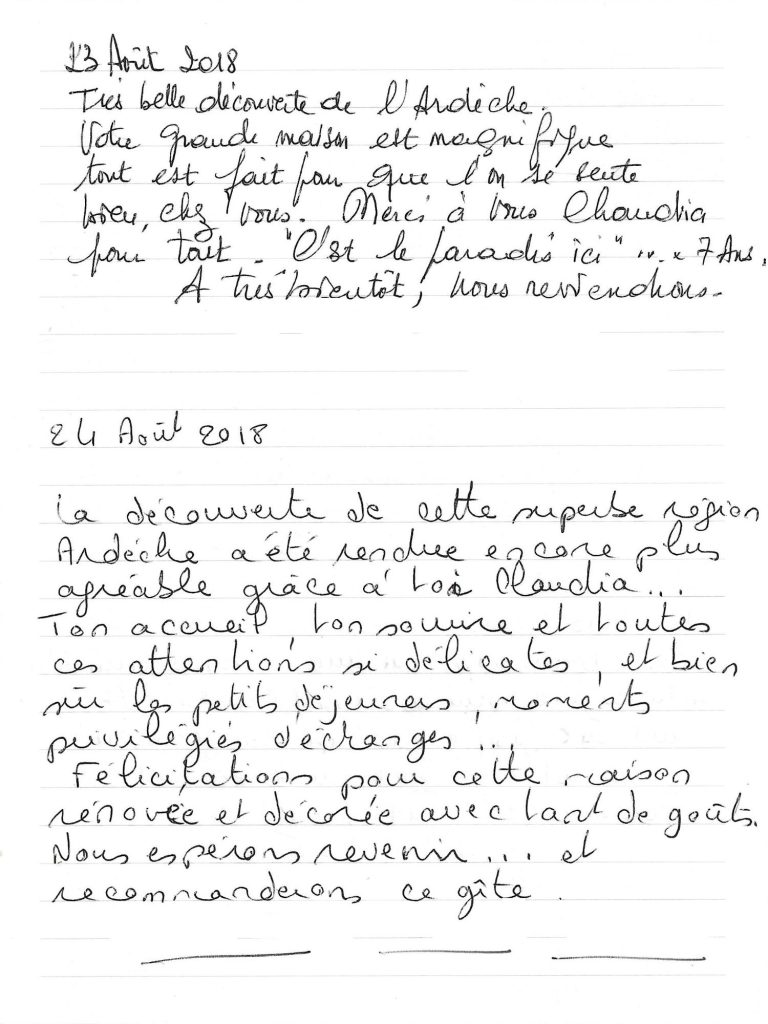 23 Août 2018
Très belle découverte de l'Ardèche.
Votre grande maison est magnifique
tout est fait pour que l'on se sente
bien, chez vous. Merci à vous Chaudia
pour tout. "C'est le paradis ici" ... 7 Ans.
A très bientôt, nous reviendrons.
24 Août 2018
La découverte de cette superbe région
Ardèche a été rendue encore plus
agréable grâce à toi Claudia...
Ton accueil, ton sourire et toutes
ces attentions si délicates, et bien
sûr les petits déjeuners, moments
privilégiés d'échanges...
Félicitations pour cette maison
rénovée et décorée avec tant de goûts.
Nous espérons revenir... et
recommanderons ce gîte.